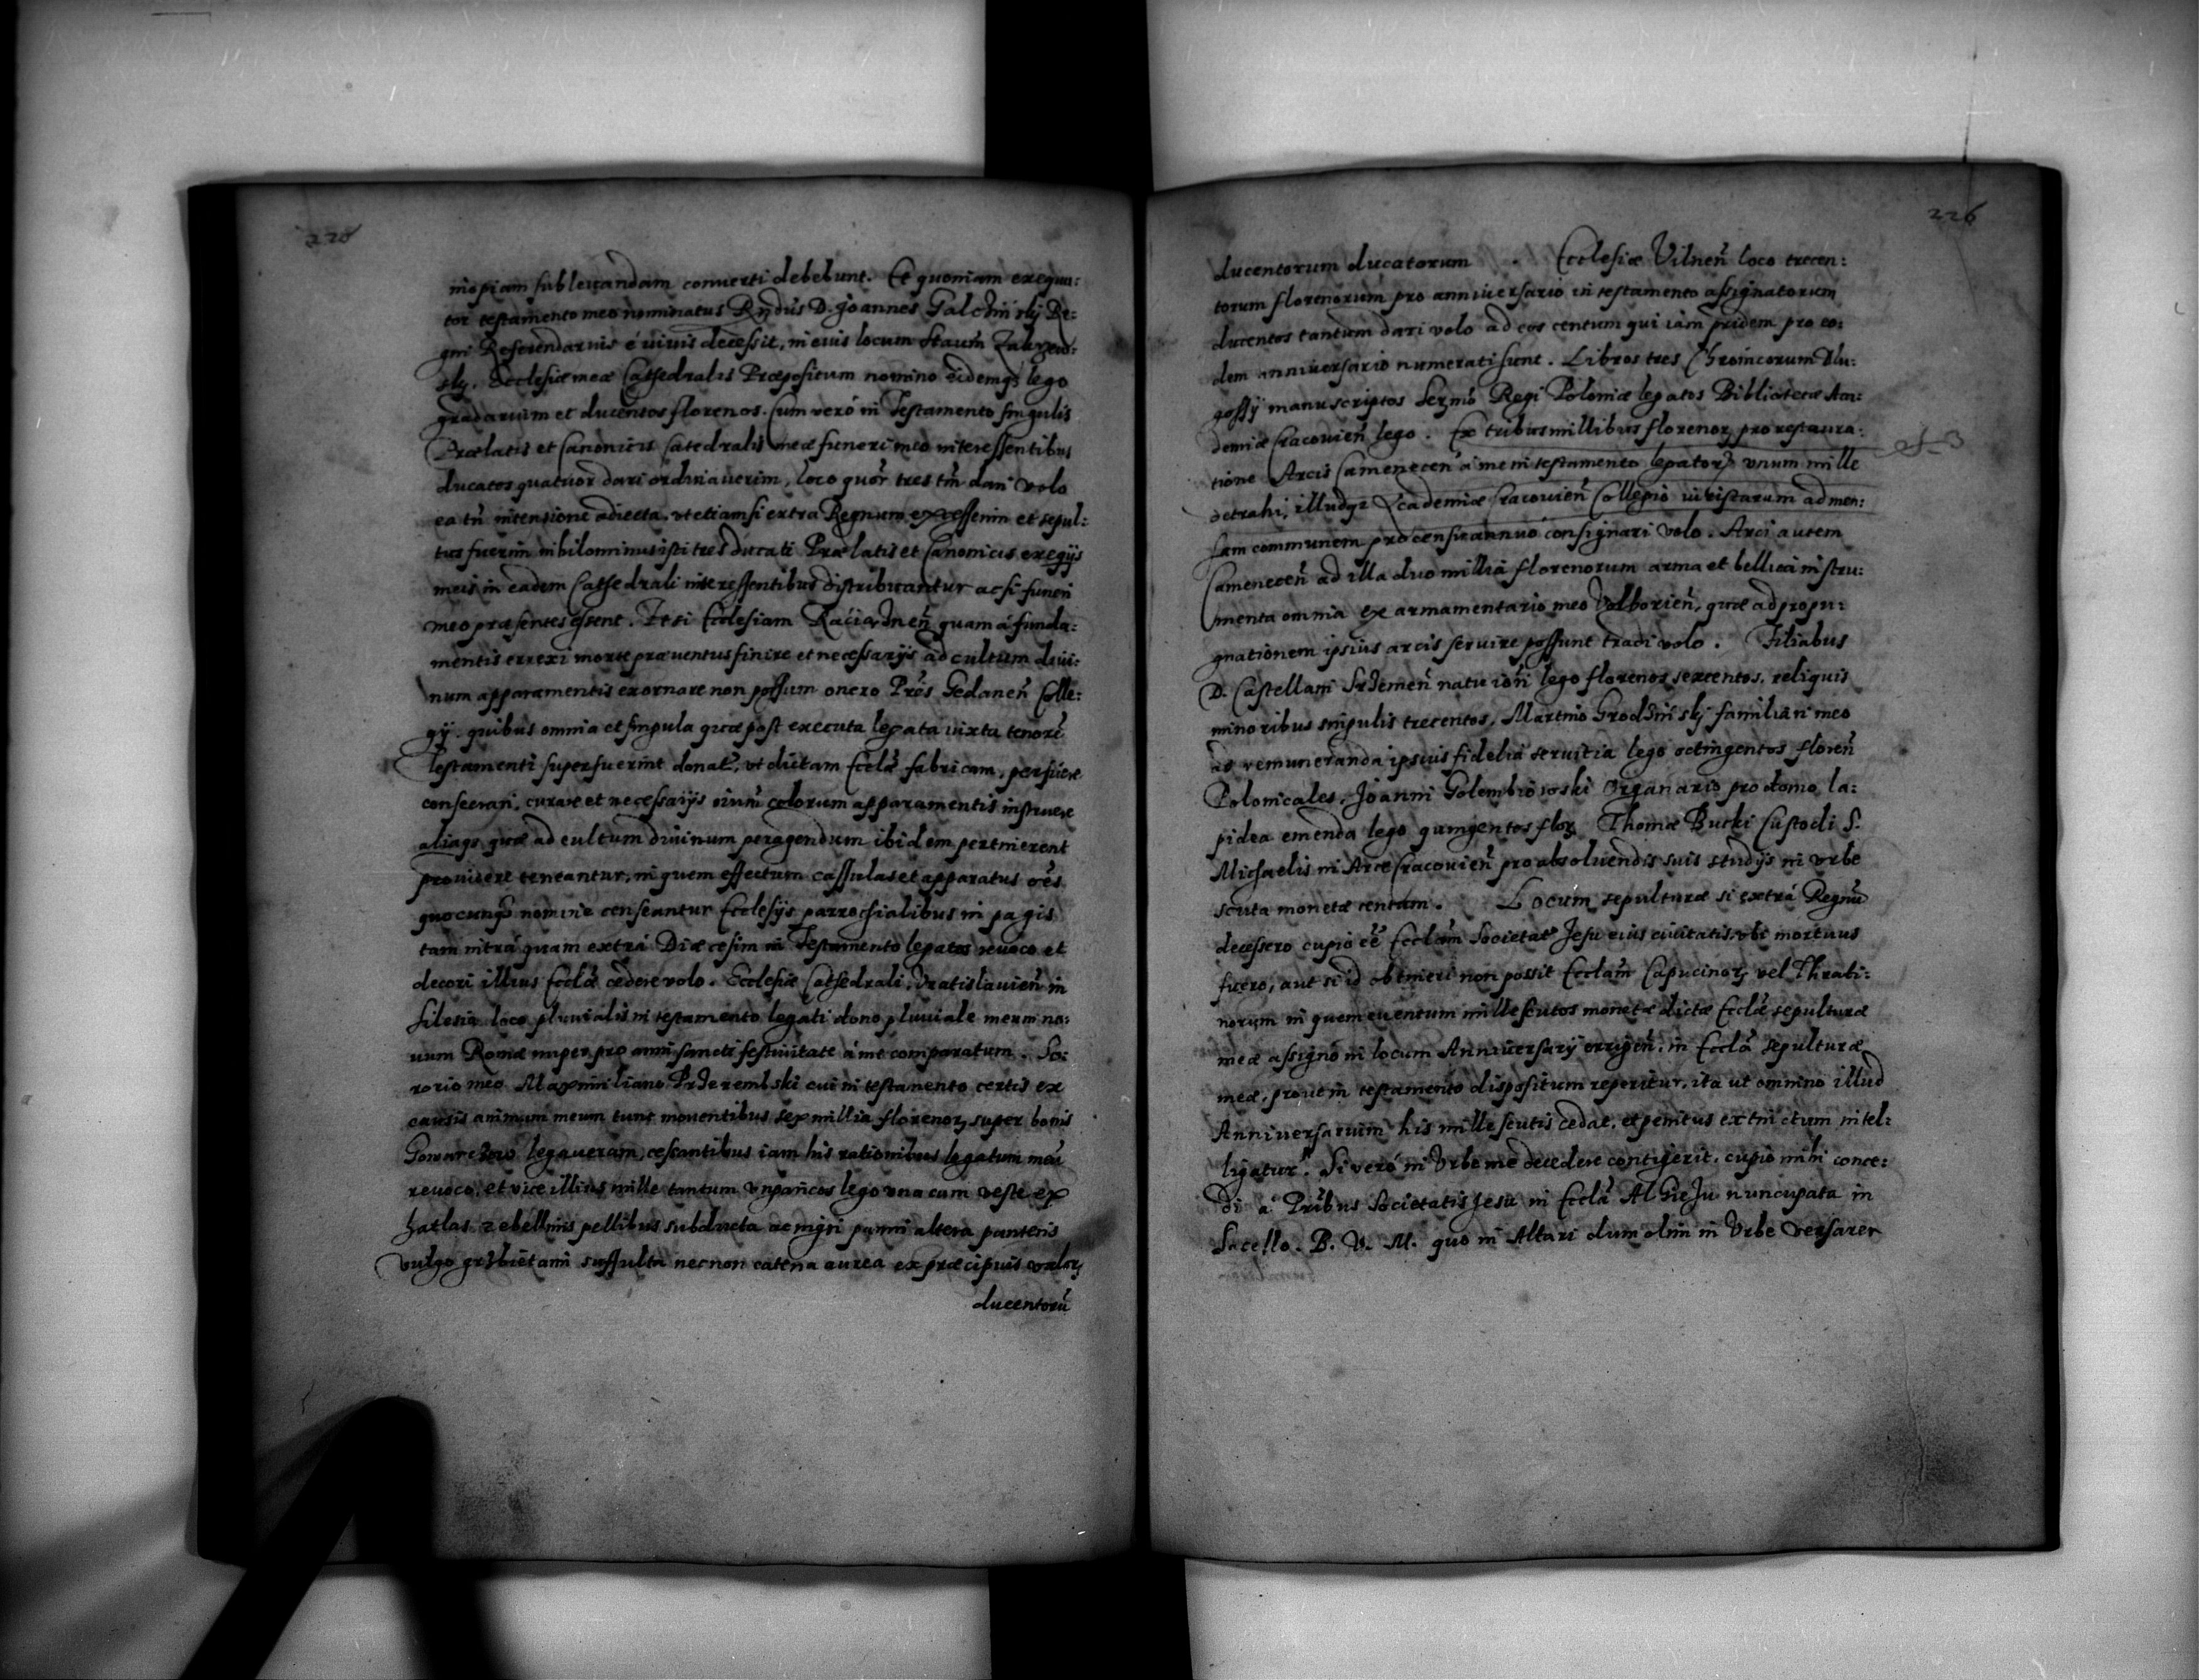 226
inopiam subleuandam conuerti debebunt. Et quoniam exequu:
tor testamento meo nominatus Rndus D. Joannes Galchinskij Re:
gni Referendarius è uiuis decessit, in eius locum
skij. Ecclesiæ meæ Cathedralis Præpositum nomino eidemq lego
gradarium et ducentos florenos. Cum veró in Testamento singulis
Prælatis et Canonicis Catedralis meæ funeri meo interessentibus
ducatos quatuor dari ordinauerim, loco quor tres tm dari volo
ea tn intensione adiecta. vt etiamsi extra Regnum excessenim et sepul:
tus fuerim nihilominus isti tres ducati Prælatis et Canonicis exequijs
meis in eadem Cathedrali interessentibus distribuantur ac si funeri
meo præsentes essent. Et si Ecclesiam quam á funda:
mentis errexi morte præuentus finire et necessarijs ad cultum diui:
num apparamentis exornare non possum onero Prés Gedaneñ Colle:
gij. quibus omnia et singula quæ post executa legata iuxta tenoré
Testamenti superfuerint donat, vt dictam Ecclã fabricam, perficere
consecrari, curare et necessarijs oium colorum apparamentis instruere
aliaqs quæ ad cultum diuinum peragendum ibidem pertinerent
prouidere teneantur, in quem effectum cassulas et apparatus oés
quocunqs nomine censeantur Ecclesijs parrochialibus in pagis
tam intrá quam extrá Diæcesim in Testamento legatos reuoco et
decori illius Ecclã cedere volo. Ecclesiæ Cathedrali, Vratislauieñ in
Silesia loco pluuialis in testamento legati dono pluuiale meum no:
uum Romæ nuper pro anni sancti festiuitate á me comparatum. So:
rorio meo Maximiliano Prderembski cui in testamento certis ex
causis animum meum tunc mouentibus sex millia florenor super bonis
legaueram, cessantibus iam his rationibus legatum meũ
reuoco, et vice illius mille tantum vngaricos lego vna cum veste ex
hatlas zebellinis pellibus subducta ac nigri panni altera panteris
vulgo suffulta necnon catena aurea ex præcipuis valor
ducentorũ
226
ducentorum ducatorum . Ecclesiæ Vilneñ loco trecen:
torum florenorum pro anniuersario in testamento assignatorum
ducentos tantum dari volo ad eos centum qui iam pridem pro eo:
dem anniuersario numerati sunt. Libros tres Chroincorum Dlu:
gossij manuscriptos Sermo Regi Poloniæ legatos Bibliotecæ Aca:
demiæ Cracouieñ lego. Ex tribus millibus florenor pro restaura:
tione Arcis Cameneceñ á me in testamento legator vnum mille
detrahi, illudqz Academiæ Cracouieñ Collegio iuristarum ad men:
sam communem pro censu annuó consignari volo. Arci autem
Cameneceñ ad illa duo millia florenorum arma et bellica instru:
menta omnia ex armamentario meo Volborieñ, quæ ad propu:
gnationem ipsius arcis seruire possunt tradi volo. Filiabus
D. Castellani Srdemeñ natu iori lego florenos sexcentos, reliquis
minoribus singulis trecentos. Martino Grodzinskij familiari meo
ad remuneranda ipsius fidelia seruitia lego octingentos floreñ
Polonicales. Joanni Golembiowski Organario pro domo la:
pidea emenda lego quingentos flor Thomæ Bucki Custodi S.
Michaelis in Arce Cracouieñ pro absoluendis suis studijs in vrbe
scuta monetæ centum. Locum sepulturæ si extrá Regnũ
decessero cupio ée Ecclam Societat Jesu eius ciuitatis vbi mortuus
fuero, aut si id obtineri non possit Ecclam Capucinor vel Thrati:
norum in quem euentum mille scutos monetæ dictæ Ecclæ sepulturæ
meæ assigno in locum Anniuersarij errigeñ. in Ecclã sepulturæ
meæ, prout in testamento dispositum reperitur, ita ut omnino illud
Anniuersarium his mille scutis cedat, et penitus extinctum intel:
ligatur. Si veró in Vrbe me decedere contigerit, cupio mihi conce:
di á Pribus Societatis Jesu in Ecclã Al Gieju nuncupata in
Sacello. B. V. M. quo in Altari dum olim in Vrbe versarer